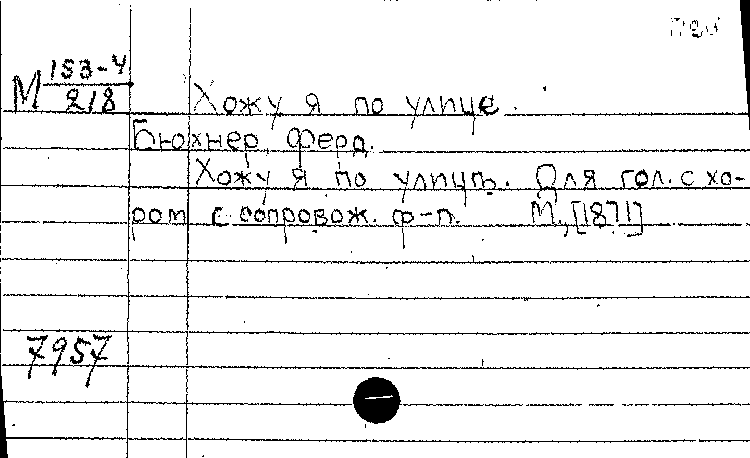 М 153-4/218
Хожу я по улице.
Бюхнер, Ферд.
Хожу я по улицѣ. Для гол. с хо-
ром с сопровож. ф-п. М., [1871]
7957